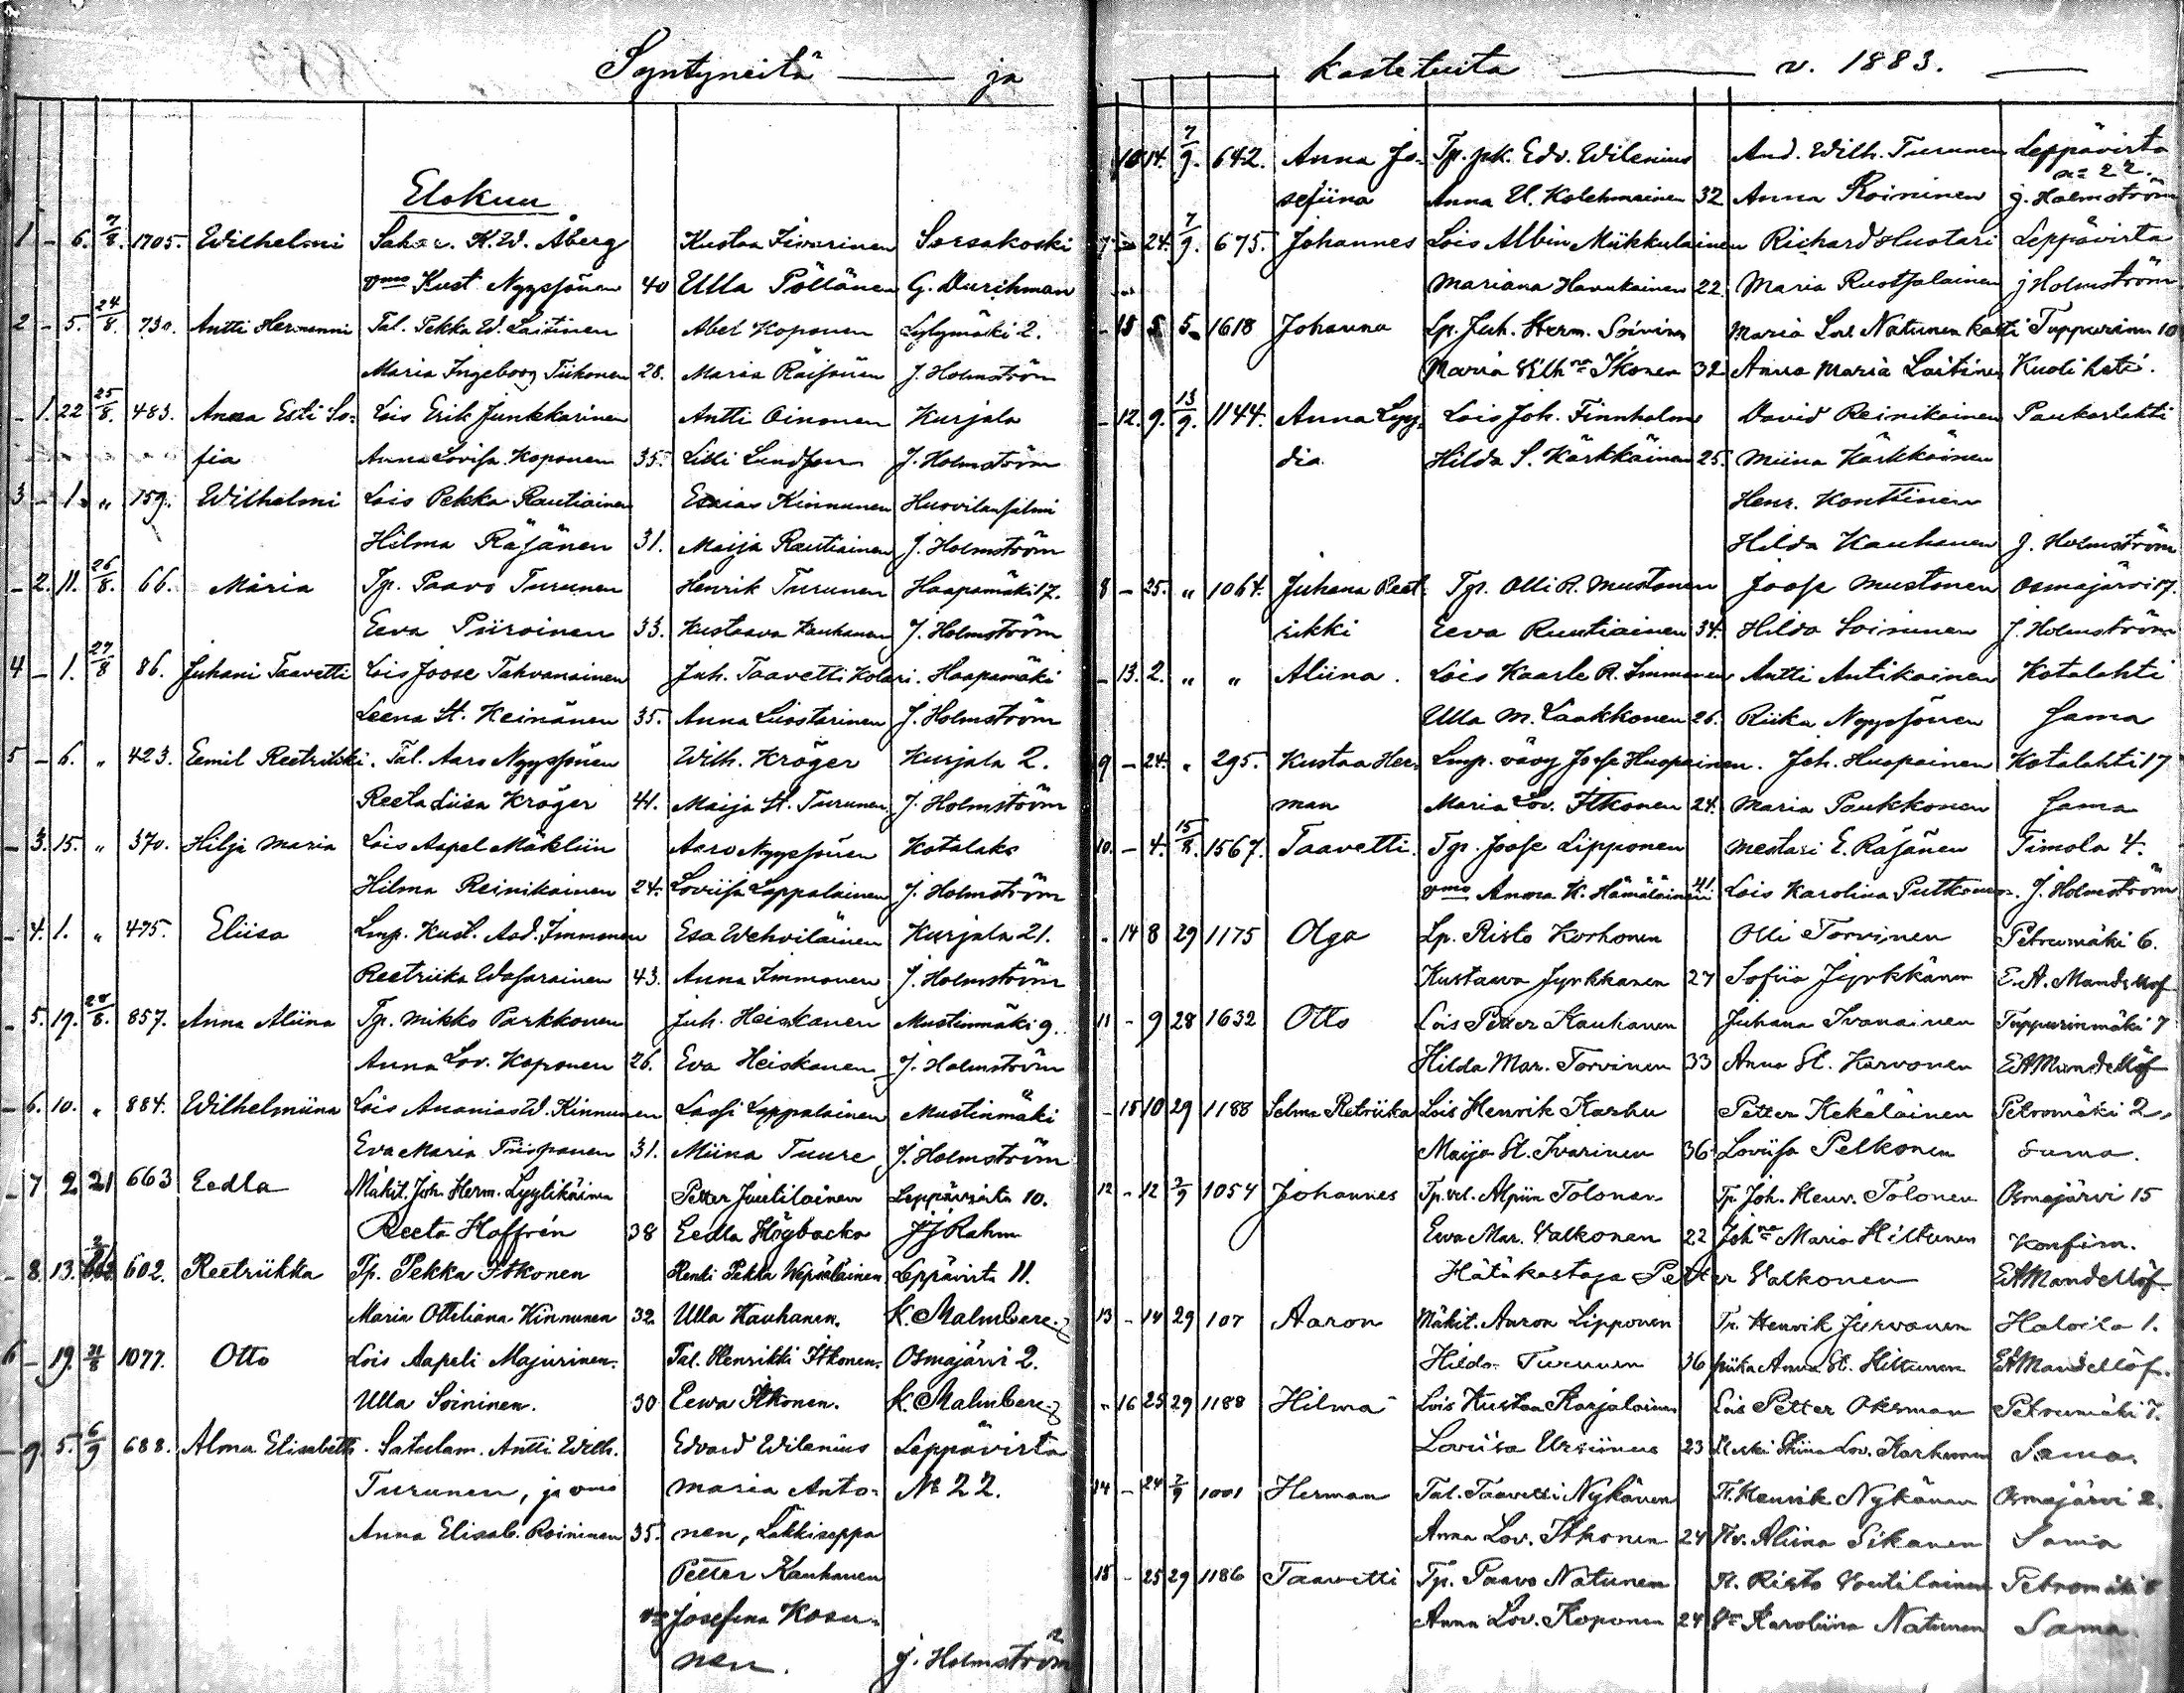 Syntyneitä — ja
Elokuu
1 - 6. 7/8. 1705. Wilhelmi Sahar. K. W. Åberg Kustaa Iivarinen Sorsakoski
vmo Kust Nyyssönen 40 Ulla Pöllänen G. Durchman
2 - 5. 24/8. 730. Antti Hermanni Tal. Pekka W. Laitinen Abel Koponen Lylymäki 2.
Maria Ingeborg Tiihonen 28. Maria Räisänen J. Holmström
- 1. 22 25/8. 483. Anna Esti So= Lois Erik Junkkarinen Antti Oinonen Kurjala
fia Anna Lovisa Koponen 35. Lilli Lindfors J. Holmström
3 - 1. " 159. Wilhelmi Lois Pekka Rautiainen Esaias Kinnunen Huovilansalmi
Hilma Räsänen 31. Maija Rautiainen J. Holmström
- 2. 11. 26/8. 66. Maria Tp. Paavo Turunen Henrik Turunen Haapamäki 17.
Eeva Piiroinen 33. Kustaava Kauhanen J. Holmström
4 - 1. 27/8 86. Juhani Taavetti Lois Joose Tahvanainen Juh. Taavetti Kolari. Haapamäki
Leena St. Keinänen 35. Anna Liistarinen J. Holmström
5 - 6. " 423. Eemil Reetrikki. Tal. Aaro Nyyssönen Wilh. Kröger Kurjala 2.
Reeta Liisa Kröger 41. Maija St. Turunen J. Holmström
- 3. 15. " 370. Hilja Maria Lois Aapel Mäkliin Aaro Nyyssönen Kotalaks
Hilma Reinikainen 24. Loviisa Lappalainen J. Holmström
- 4. 1. " 475. Eliisa Lmp. Kust. Aad. Immonen Esa Wehviläinen Kurjala 21.
Reetriika Wasarainen 43. Anna Immonen J. Holmström
- 5. 19. 28/8. 857. Anna Aliina Tp. Mikko Parkkonen Juh. Heiskanen Mustinmäki 9.
Anna Lov. Koponen 26. Eva Heiskanen J. Holmström
- 6. 10. " 884. Wilhelmiina Lois Ananias W. Kinnunen Lassi Lappalainen Mustinmäki
Eva Maria Piispanen 31. Miina Tuure J. Holmström
- 7 2 21 663 Eedla Mäkit. Joh. Herm. Lyylikäinen Petter Juutilainen Leppävirta 10.
Reeta Hoffrén 38 Eedla Högbacka J J Rahm
- 8. 13. 602. Reetriikka Tp. Pekka Itkonen Renki Pekka Wepsäläinen Leppävirta 11.
Maria Ottiliana Kinnunen 32. Ulla Kauhanen. K. Malmberg
6 - 19. 31/8 1077. Otto Lois Aapeli Majurinen. Tal. Henrikki Itkonen. Osmajärvi 2.
Ulla Soininen. 30 Eewa Itkonen. K. Malmberg
- 9 5. 6/9 688. Alma Elisabeth. Satulam. Antti Wilh. Edvard Wilenius Leppävirta
Turunen, ja vmo Maria Anto= № 22.
Anna Elisab. Roininen 35. nen, Lakkiseppä
Petter Kauhanen
vmo Josefina Kosu=
nen. J. Holmström
kastetuita — v. 1883. —
10 14. 7/9. 642. Anna Jo= Tp. pk. Edv. Wilenius And. Wilh. Turunen Leppävirta
n= 22.
sefiina Anna U. Kolehmainen 32 Anna Roininen J. Holmström
7 - 24. 7/9. 675. Johannes Lois Albin Miikkulainen Richard Huotari Leppävirta
Mariana Havukainen 22. Maria Ruotsalainen J Holmström
- 15 8 5 1618 Johanna Lp. Juh. Herm. Soininen Maria Lov. Natunen kasti Tuppurinm 10
Maria Wilhna Ikonen 32 Anna Maria Laitinen Kuoli heti.
- 12. 9. 13/9. 1144. Anna Lyy= Lois Joh. Finnholm David Reinikainen Paukarlahti
dia. Hilda S. Kärkkäinen 25. Miina Kärkkäinen
Henr. Konttinen
Hilda Kauhanen J. Holmström
8 - 25. " 1064. Juhana Reet= Tp. Olli R. Mustonen Joose Mustonen Osmajärvi 17.
rikki Eeva Ruutiainen 34. Hilda Soininen J. Holmström
- 13. 2. " " Aliina. Lois Kaarle R. Immonen Antti Antikainen Kotalahti
Ulla M. Laakkonen 26. Riika Nyyssönen Sama
9 - 24. " 295. Kustaa Her= Lmp. vävy Joose Huopainen. Joh. Huopainen Kotalahti 17
man Maria Lov. Itkonen 24. Maria Paukkonen Sama
10. - 4. 15/8. 1567. Taavetti. Tp. Joose Lipponen Mestari E. Räsänen Timola 4.
vmo Anna K. Hämäläinen 41. Lois Karolina Putkonen. J. Holmström
- 14 8 29 1175 Olga Lp. Risto Korhonen Olli Torvinen Petrumäki 6.
Kustaava Jyrkkanen 27 Sofiia Jyrkkänen E. A. Mandellöf
11 - 9 28 1632 Otto Lois Petter Kauhanen Juhana Ivanainen Tuppurinmäki 7
Hilda Mar. Torvinen 33 Anna St. Karvonen E A Mandellöf
- 15 10 29 1188 Selma Retriika Lois Henrik Karhu Petter Kekäläinen Petromäki 2.
Maija St. Ivarinen 36 Loviisa Pelkonen Sama.
12 - 12 2/9 1054 Johannes Tp. vel. Alpiin Tolonen Tp. Joh. Henr. Tolonen Osmajärvi 15
Ewa Mar. Valkonen 22 Johna Maria Hiltunen Konfirm.
Hätäkastaja Petter Valkonen E A Mandellöf
13 - 14 29 107 Aaron Mäkit. Aaron Lipponen Tp. Henrik Jurvanen Haloila 1.
Hilda Turunen 36 piika Anna St. Hiltunen E A Mandellöf.
" 16 25 29 1188 Hilma Lois Kustaa Karjalainen Lois Petter Oksman Petrumäki 7.
Loviisa Ursiinus 23 Leski Stiina Lov. Karhunen Sama.
14 - 24 2/9 1001 Herman Tal. Taavetti Nykänen Tl. Henrik Nykänen Osmajärvi 2.
Anna Lov. Itkonen 24 Nv. Aliina Sikanen Sama
15 - 25 29 1186 Taavetti Tp. Paavo Natunen Tl. Risto Voutilainen Petromäki 8
Anna Lov. Koponen 24 Vo Karoliina Natunen Sama.